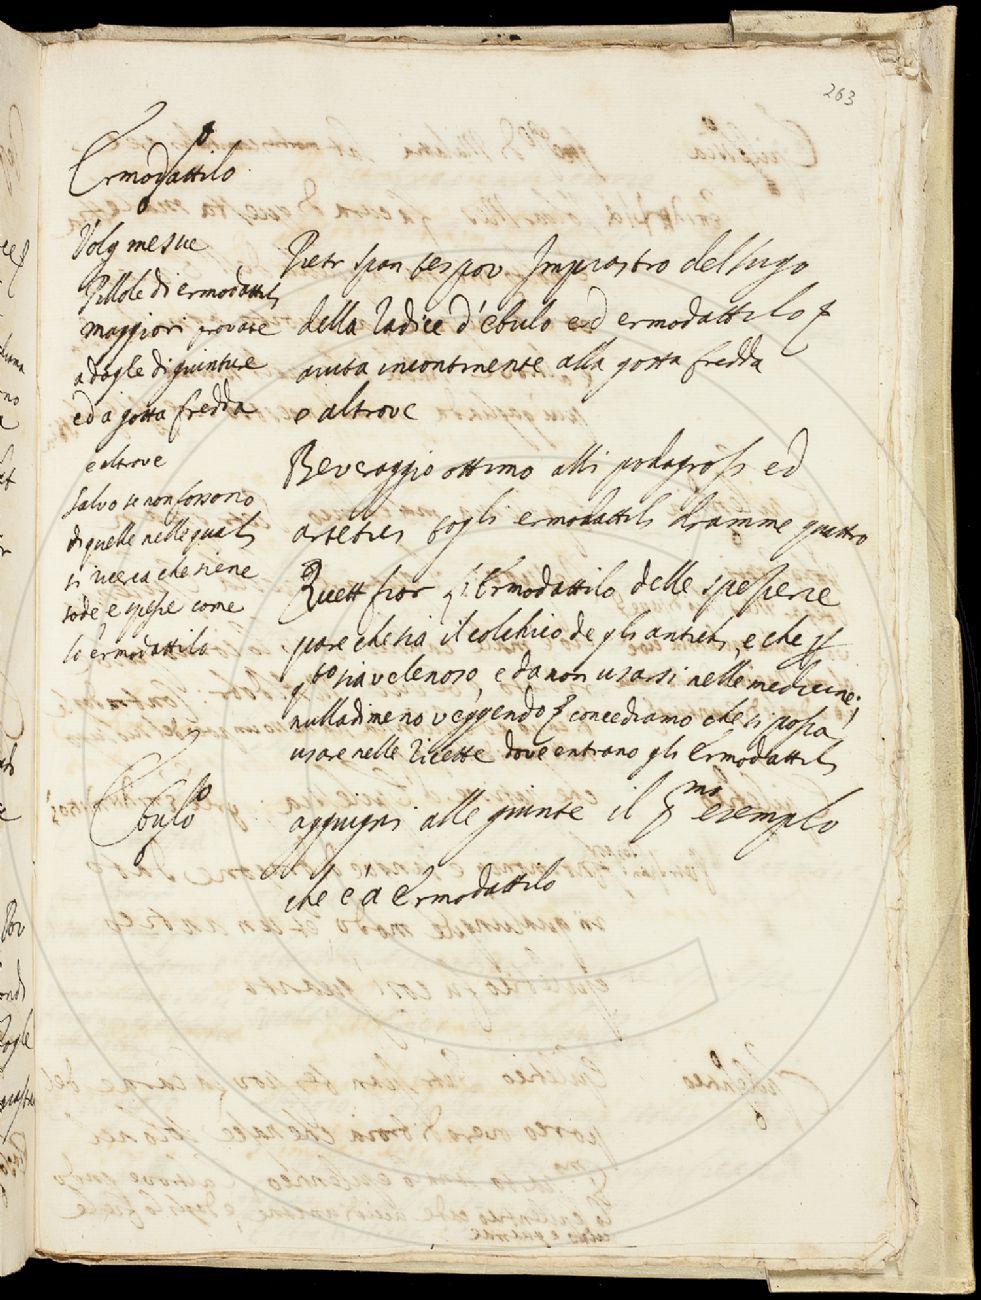 263
Ermodattilo
Volg mesue
Pillole di ermodattili
maggiori provate
a dogle di giunture
ed a gotta fredda
e altrove
salvo se non fossono
di quelle nelle quali
si ricerca che siene
sode e spesse come
lo ermodattilo
Pietr span tes pov Impiastro del sugo
della radice d'ebulo ed ermodattilo
aiuta incontinente alla gotta fredda
e altrove
Beveraggio ottimo alli podagrosi ed
artetici togli ermodattili dramme quattro
Ricett fior Ermodattilo delle spesierie
pare che sia il colchico de gli antichi, e che
sia velenoso, e da non usarsi nelle medicine;
nulladimeno veggendo concediamo che si possa
usare nelle ricette dove entrano gli Ermodattili
Ebulo
aggiugni alle giunte il esemplo
che è a Ermodattilo